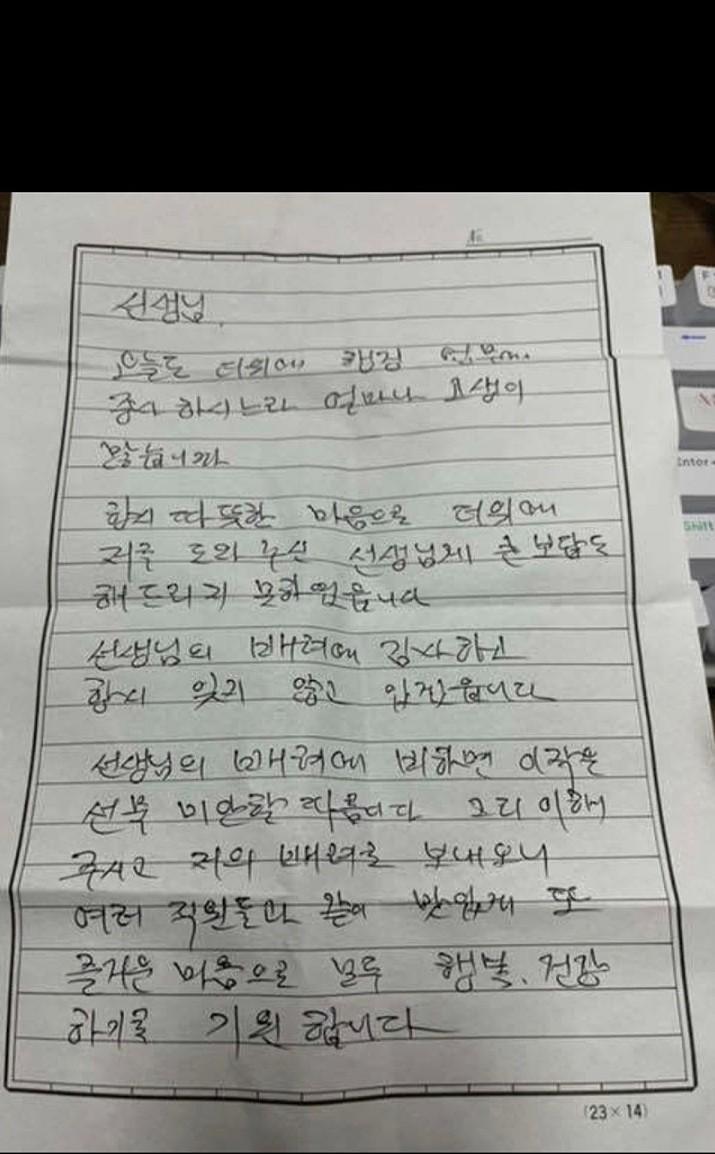 №
선생님.
오늘도 더위에 행정 업무에
종사 하시느라 얼마나 고생이
많습니까
항시 따뜻한 마음으로 더위에
저를 도와 주신 선생님게 큰 보답도
해 드리지 못하였읍니다
선생님의 배려에 감사하고
항시 잊지 않고 있겠읍니다
선생님의 배려에 비하면 이작은
선물 미안할 따름니다 그리 이해
주시고 저의 배려를 보내오니
여러 직원들과 같이 맛있게 또
즐거운 마음으로 모두 행복, 건강
하기를 기원 합니다
(23×14)
Enter
Shift